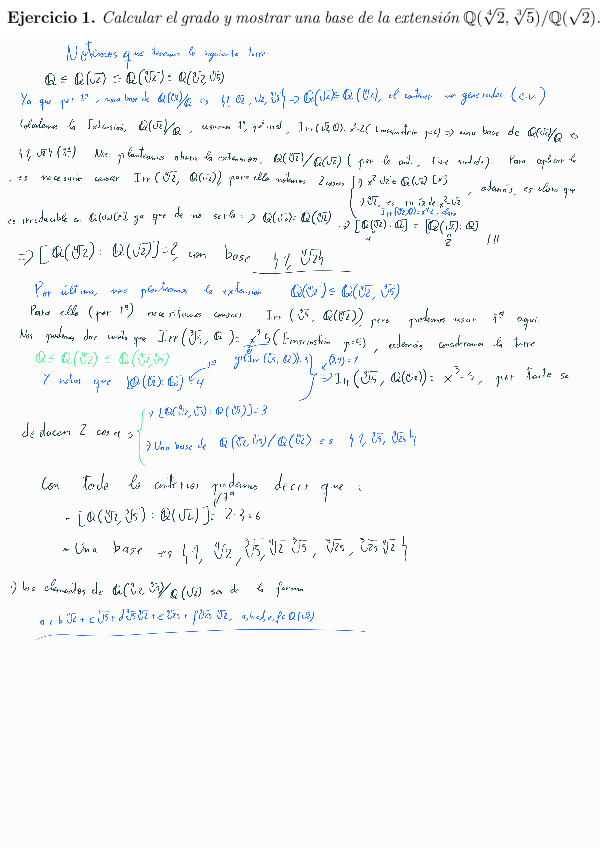 Ejercicio 1. Calcular el grado y mostrar una base de la extensión ℚ(∜2, ∛5)/ℚ(√2).
Notemos que tenemos la siguiente torre:
ℚ ⊆ ℚ(√2) ⊆ ℚ(∜2) ⊆ ℚ(∜2, ∛5)
Ya que por 1º, una base de ℚ(∜2)/ℚ es {1, ∜2, √2, ∜8} => ℚ(√2) ⊆ ℚ(∜2), al contener un generador (e.v.)
la Extensión, ℚ(√2)/ℚ, usamos 1º, Irr(√2, ℚ) = x²-2 (Eisenstein p=2) => una base de ℚ(√2)/ℚ es
{1, √2} (1º) Nos planteamos ahora la extensión, ℚ(∜2)/ℚ(√2) (por lo ant.). Para aplicar 1º
, es necesario conocer Irr(∜2, ℚ(√2)), para ello notamos 2 cosas { -> x²-√2 ∈ ℚ(√2)[x]
-> ∜2, es raíz de x²-√2 , además, es claro que
Irr(∜2, ℚ) = x⁴-2, claro
es irreducible en ℚ(√2)[x], ya que de no serlo => ℚ(√2) = ℚ(∜2) => [ℚ(∜2):ℚ] = [ℚ(√2):ℚ]
4 2 !!!
=> [ℚ(∜2) : ℚ(√2)] = 2, con base {1, ∜2}
Por último, nos planteamos la extensión ℚ(∜2) ⊆ ℚ(∜2, ∛5)
Para ello (por 1º) necesitamos conocer Irr(∛5, ℚ(∜2)), pero podemos usar 3º aquí.
Nos podemos dar cuenta que Irr(∛5, ℚ) = x³-5 (Eisenstein p=5), además consideramos la torre
ℚ ⊆ ℚ(∜2) ⊆ ℚ(∜2, ∛5) gr(Irr(∛5, ℚ)) = 3 (3,4)=1
Y notar que [ℚ(∜2):ℚ] = 4 => Irr(∛5, ℚ(∜2)) = x³-5, por tanto se
deducen 2 cosas { -> [ℚ(∜2, ∛5) : ℚ(∜2)] = 3
-> Una base de ℚ(∜2, ∛5)/ℚ(∜2) es {1, ∛5, ∛25}
Con todo lo anterior podemos decir que:
- [ℚ(∜2, ∛5) : ℚ(√2)] = 2·3 = 6
- Una base es {1, ∜2, ∛5, ∜2 ∛5, ∛25, ∛25 ∜2}
·) los elementos de ℚ(∜2, ∛5)/ℚ(√2) son de la forma
a + b∜2 + c∛5 + d∛5∜2 + e∛25 + f∛25∜2, a,b,c,d,e,f ∈ ℚ(√2)